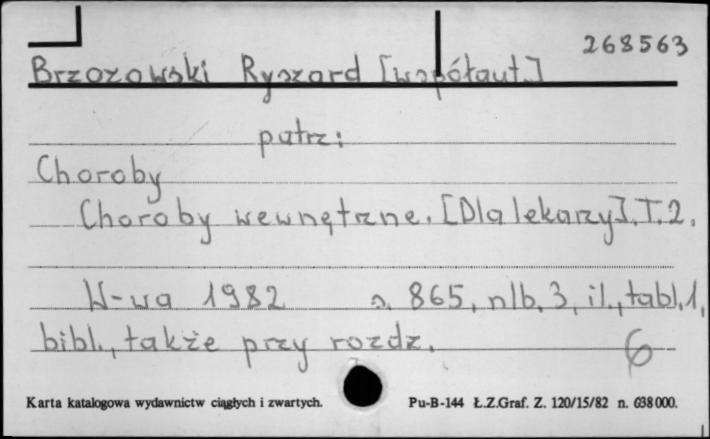 268563
Brzozowski Ryszard [współaut.]
patrz:
Choroby
Choroby wewnętrzne. [Dla lekarzy]. T. 2.
W-wa 1982 s. 865, nlb. 3, il., tabl. 1,
bibl., także przy rozdz.
6
Karta katalogowa wydawnictw ciągłych i zwartych. Pu-B-144 Ł.Z.Graf. Z. 120/15/82 n. 638000.